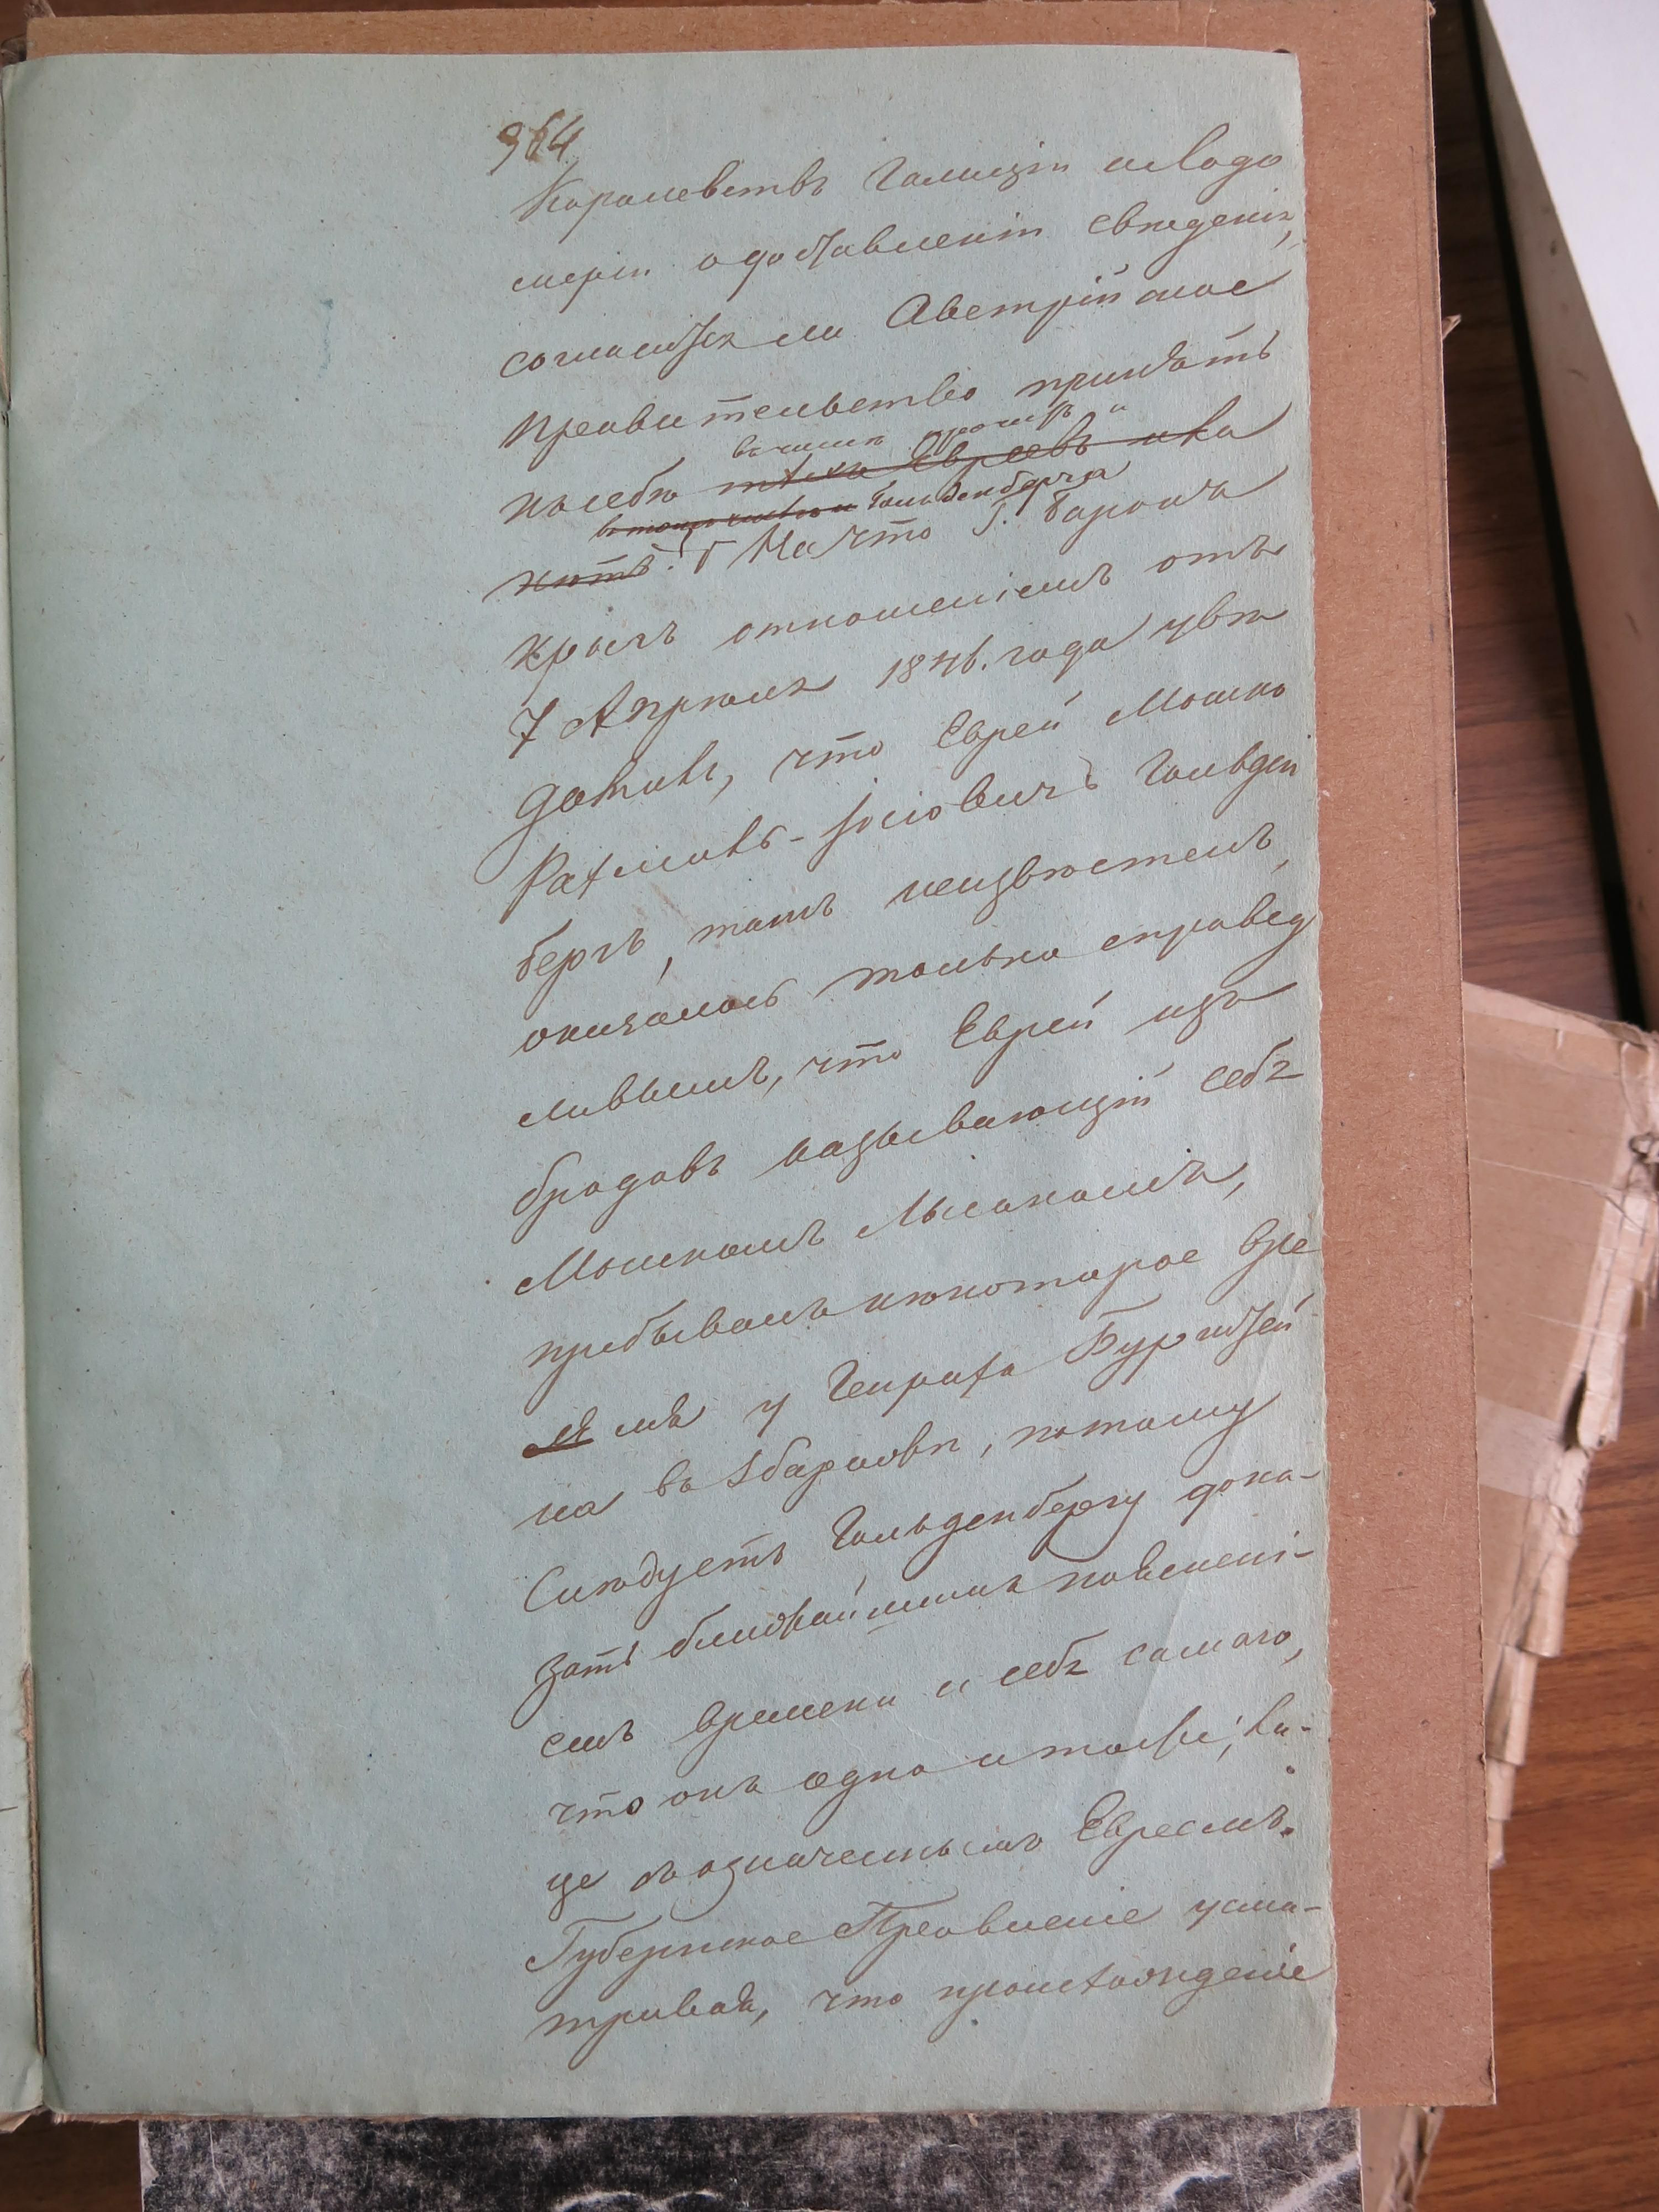 964
Королевствъ Галиціи и Лодо
меріи о доставленіи свѣденія,
согласится ли Австрійское
Правительство принять
въ числѣ прочихъ и
къ себѣ тѣхъ Евреевъ или
Гольденберга
нѣтъ. На что Г. Баронъ
Кригъ отношеніемъ отъ
7 Апрѣля 1846. года увѣ
домилъ, что Еврей Мошко
Рахмиль-Іосіовичъ Гольден
бергъ, тамъ неизвѣстенъ,
оказалось только справед
ливымъ, что Еврей изъ
Бродовъ называющій себя
Мошкомъ
пребывалъ нѣкоторое вре
мя у Гейриха Бургштей
на въ Збаровѣ, потому
Слѣдуетъ Гольденбергу дока-
зать ближайшимъ поясненi-
емъ времени и себя самаго,
что онъ одно и тоже ли-
це съ означеннымъ Евреемъ.
Губернское Правленіе усма-
тривая, что происхожденіе